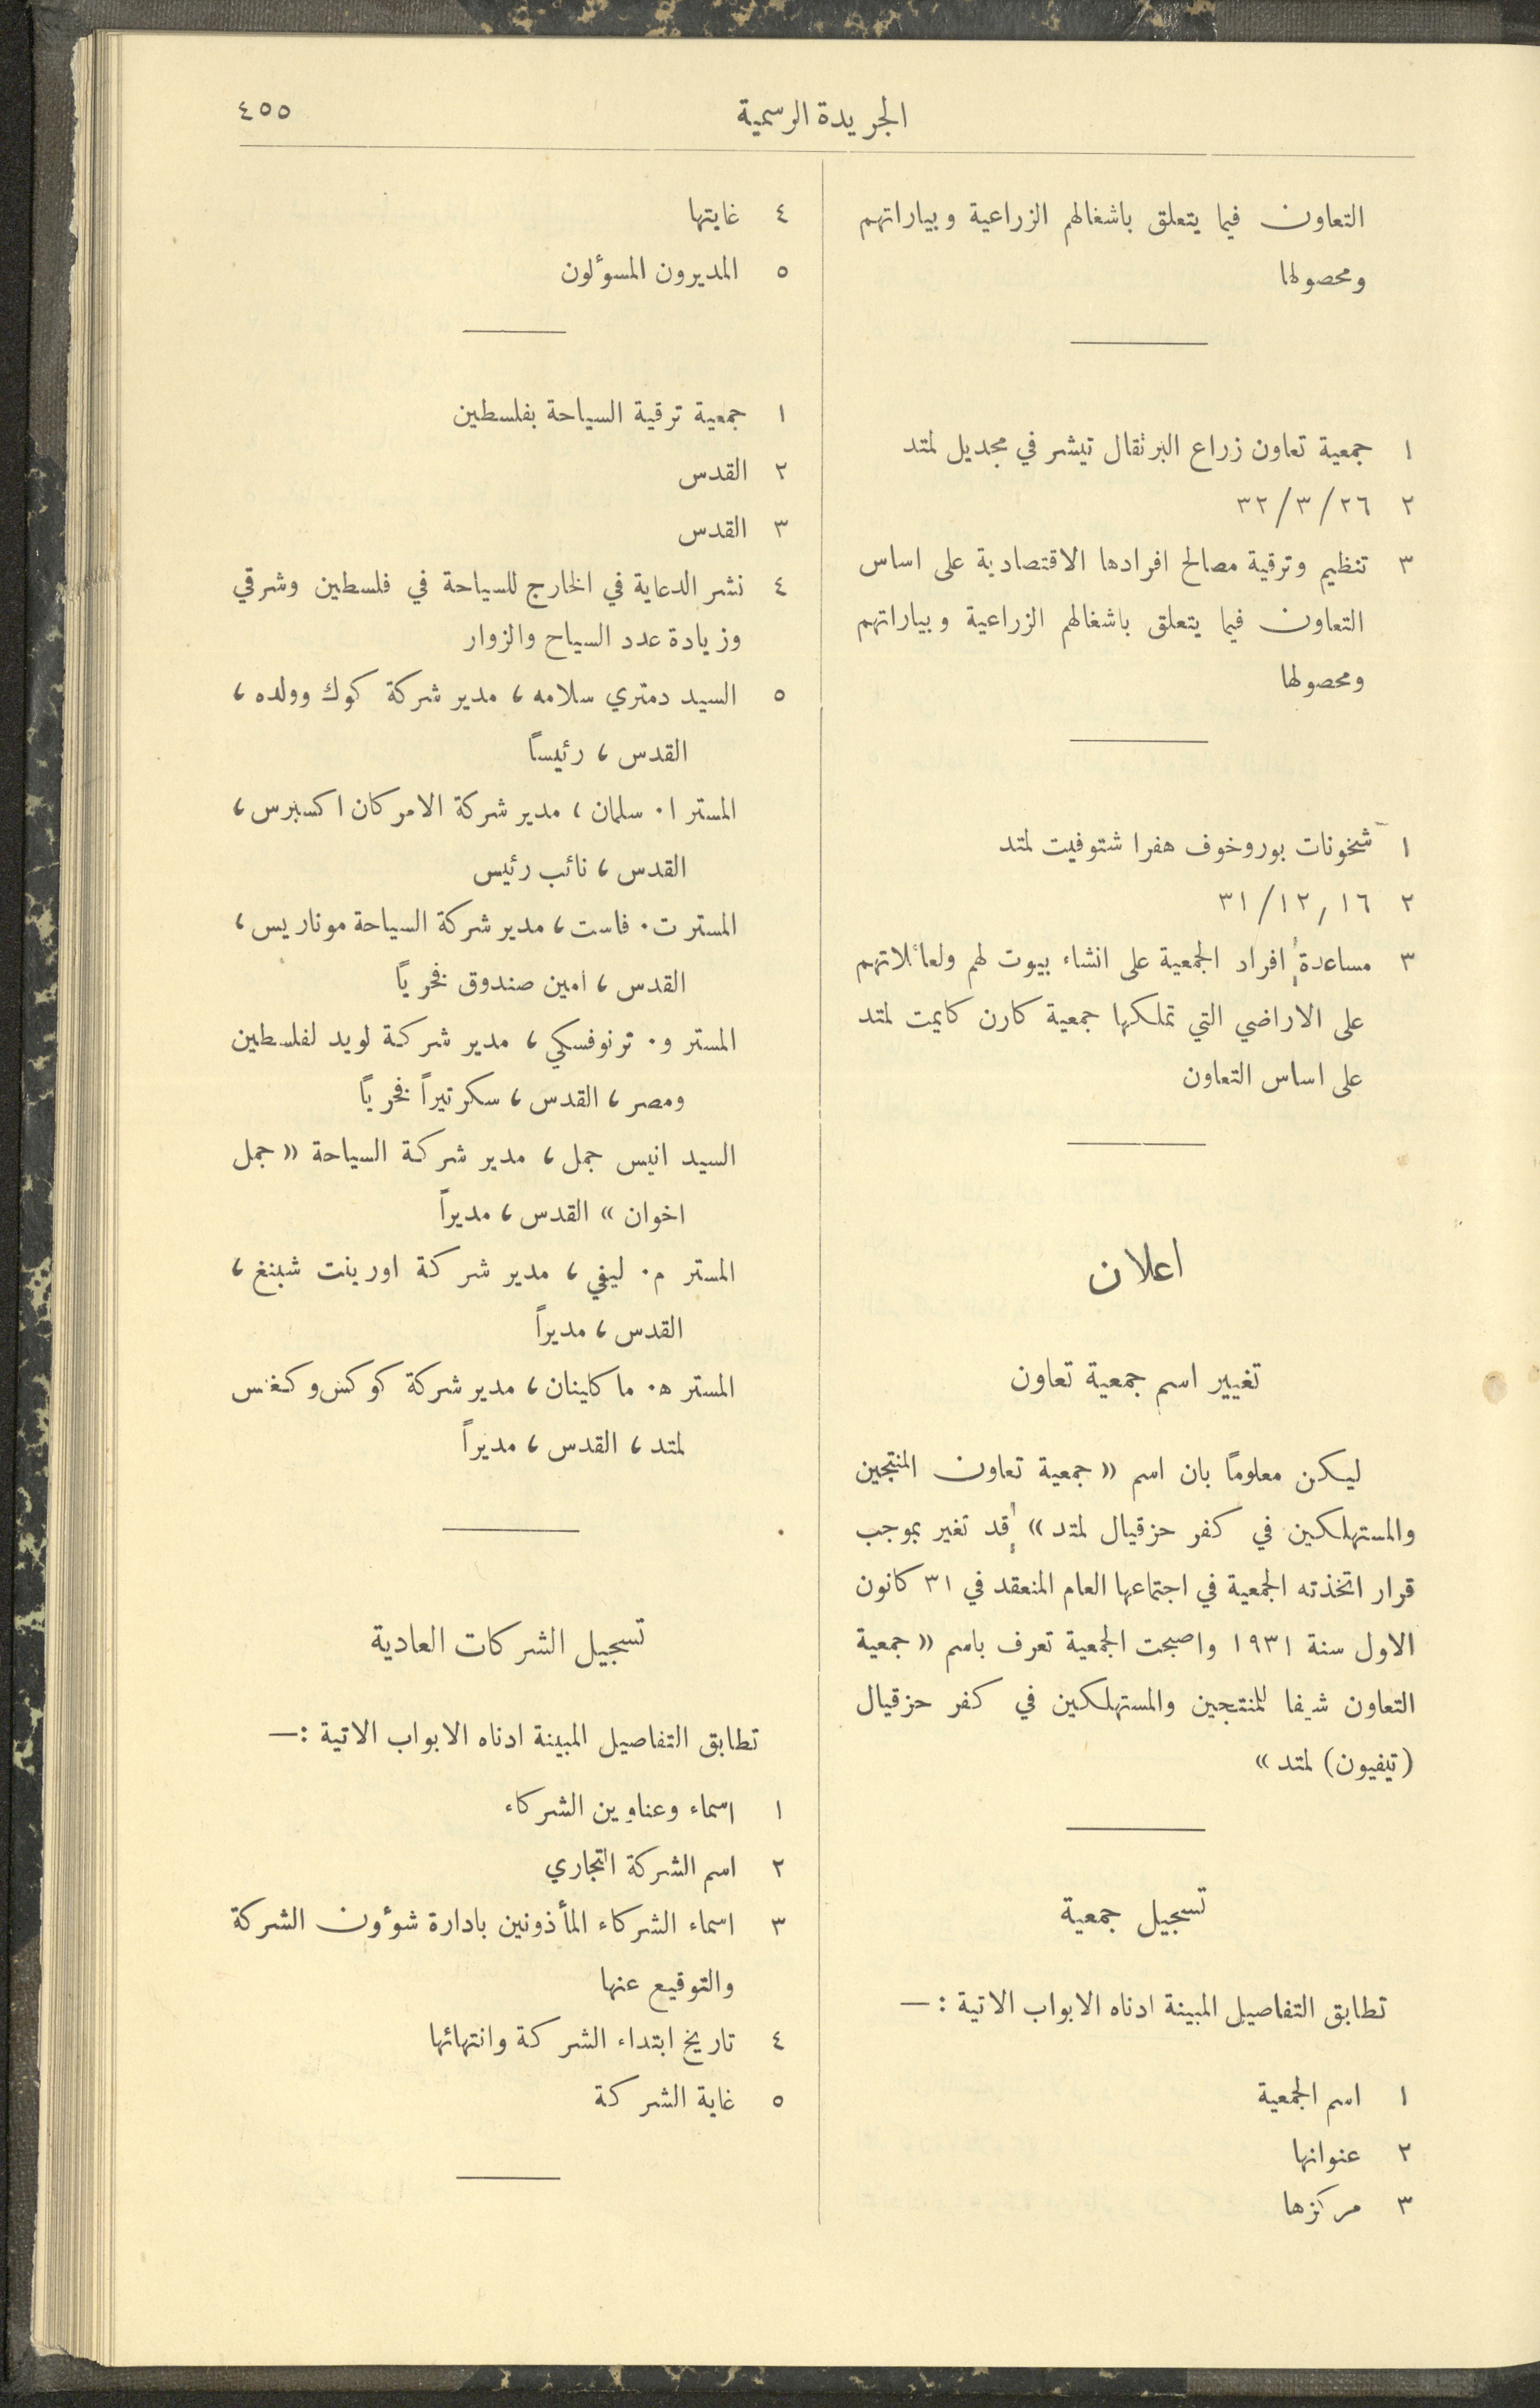 الجريدة الرسمية
٤٥٥
التعاون فيما يتعلق باشغالهم الزراعية وبياراتهم
ومحصولها
١ جمعية تعاون زراع البرتقال تيشر في مجديل لمتد
٢ ٢٦/٣/٣٢
٣ تنظيم وترقية مصالح افرادها الاقتصادية على اساس
التعاون فيما يتعلق باشغالهم الزراعية وبياراتهم
ومحصولها
١ شخونات بوروخوف هفرا شتوفيت لمتد
٢ ١٦/١٢/٣١
٣ مساعدة افراد الجمعية على انشاء بيوت لهم ولعائلاتهم
على الاراضي التي تملكها جمعية كارن كايمت لمتد
على اساس التعاون
اعلان
تغيير اسم جمعية تعاون
ليكن معلوماً بان اسم «جمعية تعاون المنتجين
والمستهلكين في كفر حزقيال لمتد» قد تغير بموجب
قرار اتخذته الجمعية في اجتماعها العام المنعقد في ٣١ كانون
الاول سنة ١٩٣١ واصبحت الجمعية تعرف باسم «جمعية
التعاون شيفا للمنتجين والمستهلكين في كفر حزقيال
(تيفيون) لمتد»
تسجيل جمعية
تطابق التفاصيل المبينة ادناه الابواب الاتية :—
١ اسم الجمعية
٢ عنوانها
٣ مركزها
٤ غايتها
٥ المديرون المسوٴلون
١ جمعية ترقية السياحة بفلسطين
٢ القدس
٣ القدس
٤ نشر الدعاية في الخارج للسياحة في فلسطين وشرقي
وزيادة عدد السياح والزوار
٥ السيد دمتري سلامه، مدير شركة كوك وولده،
القدس، رئيساً
المستر ا. سلمان، مدير شركة الامركان اكسبرس،
القدس، نائب رئيس
المستر ت. فاست، مدير شركة السياحة موناريس،
القدس، امين صندوق فخرياً
المستر و. ترنوفسكي، مدير شركة لويد لفلسطين
ومصر، القدس، سكرتيراً فخرياً
السيد انيس جمل، مدير شركة السياحة «جمل
اخوان» القدس، مديراً
المستر م. ليفي، مدير شركة اورينت شبنغ،
القدس، مديراً
المستر ه. ماكلينان، مدير شركة كوكس وكنغس
لمتد، القدس، مديراً
تسجيل الشركات العادية
تطابق التفاصيل المبينة ادناه الابواب الاتية :—
١ اسماء وعناوين الشركاء
٢ اسم الشركة التجاري
٣ اسماء الشركاء المأذونين بادارة شوٴون الشركة
والتوقيع عنها
٤ تاريخ ابتداء الشركة وانتهائها
٥ غاية الشركة